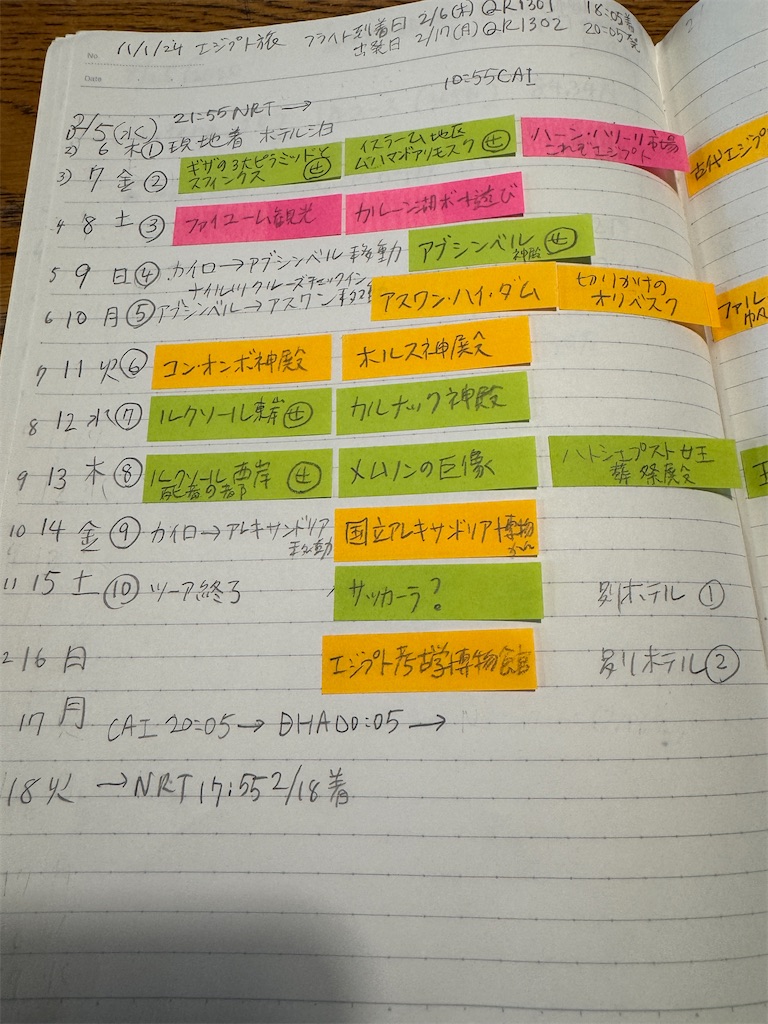 No.
11/1/24 エジプト旅 フライト到着日 2/6(木)QR1301 18:05着
出発日 2/17(月)QR1302 20:05発
Date
10:55CAI
2/5(水) 21:55NRT→
2) 6 木 ① 現地着 ホテル泊
3) 7 金 ② ギザの3大ピラミッドとスフィンクス 世 イスラーム地区 ムハマンドアリモスク 世 ハーン・ハリーリ市場 これぞエジプト 古代エジプ
4 8 土 ③ ファイユーム観光 カルーン湖ボート遊び
5 9 日 ④ カイロ→アブシンベル移動 アブシンベル神殿 世
ナイルリバークルーズチェックイン
6 10 月 ⑤ アブシンベル→アスワン移動 アスワン・ハイ・ダム 切りかけのオリベスク ファル
7 11 火 ⑥ コン・オンボ神殿 ホルス神殿
8 12 水 ⑦ ルクソール東岸 世 カルナック神殿
9 13 木 ⑧ ルクソール西岸 死者の都 世 メムノンの巨像 ハトシェプスト女王葬祭殿 王
10 14 金 ⑨ カイロ→アレキサンドリア移動 国立アレキサンドリア博物かん
11 15 土 ⑩ ツーア終了 サッカーラ? 別ホテル ①
2 16 日 エジプト考古学博物館 別ホテル ②
17 月 CAI 20:05→DHA00:05→
18 火 →NRT 17:55 2/18着